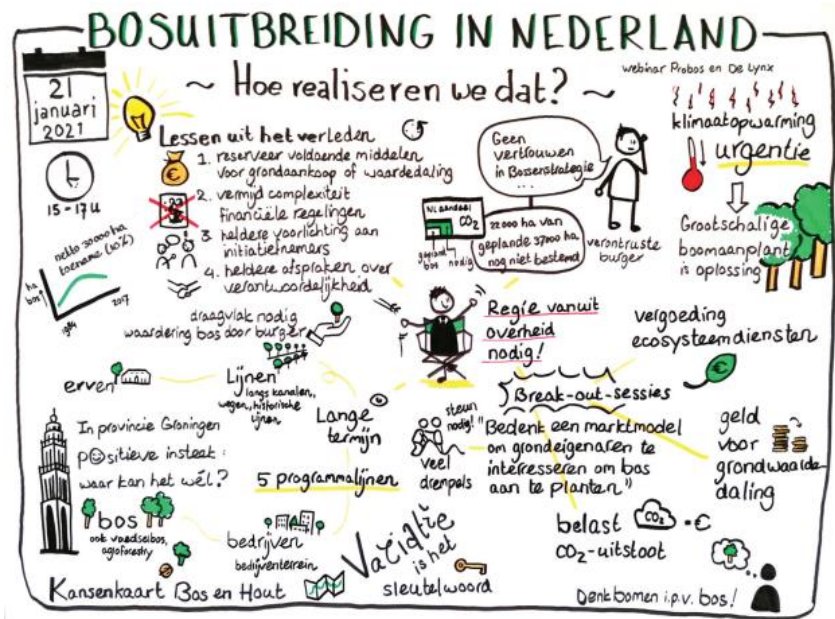 BOSUITBREIDING IN NEDERLAND
~ Hoe realiseren we dat? ~
webinar Probos en De Lynx
21
januari
2021
15-17u
netto 30000 ha
toename (10%)
ha
bos
1984
2007
Lessen uit het verleden
1. reserveer voldoende middelen
voor grondaankoop of waardedaling
2. vermijd complexiteit
financiële regelingen
3. heldere voorlichting aan
initiatiefnemers
4. heldere afspraken over
verantwoordelijkheid
Geen
vertrouwen
in Bossenstrategie
...
NL aandeel
CO2
gepland
bos
nodig
22000 ha van
geplande 37000 ha
nog niet bestemd
verontruste
burger
klimaatopwarming
urgentie
Grootschalige
boomaanplant
is oplossing
draagvlak nodig
waardering bos door burger
Regie vanuit
overheid
nodig!
vergoeding
ecosysteemdiensten
€
erven
Lijnen
langs kanalen,
wegen, historische
lijnen
Lange
termijn
Break-out-sessies
steun
nodig!
veel
drempels
"Bedenk een marktmodel
om grondeigenaren te
interesseren om bos
aan te planten"
geld
voor
grondwaarde
daling
In provincie Groningen
positieve insteek:
waar kan het wél?
5 programmalijnen
bos
ook voedselbos,
agroforestry
bedrijven
bedrijventerrein
Variatie
is het
sleutelwoord
belast CO2 = €
CO2-uitstoot
Kansenkaart Bos en Hout
Denk bomen i.p.v. bos!